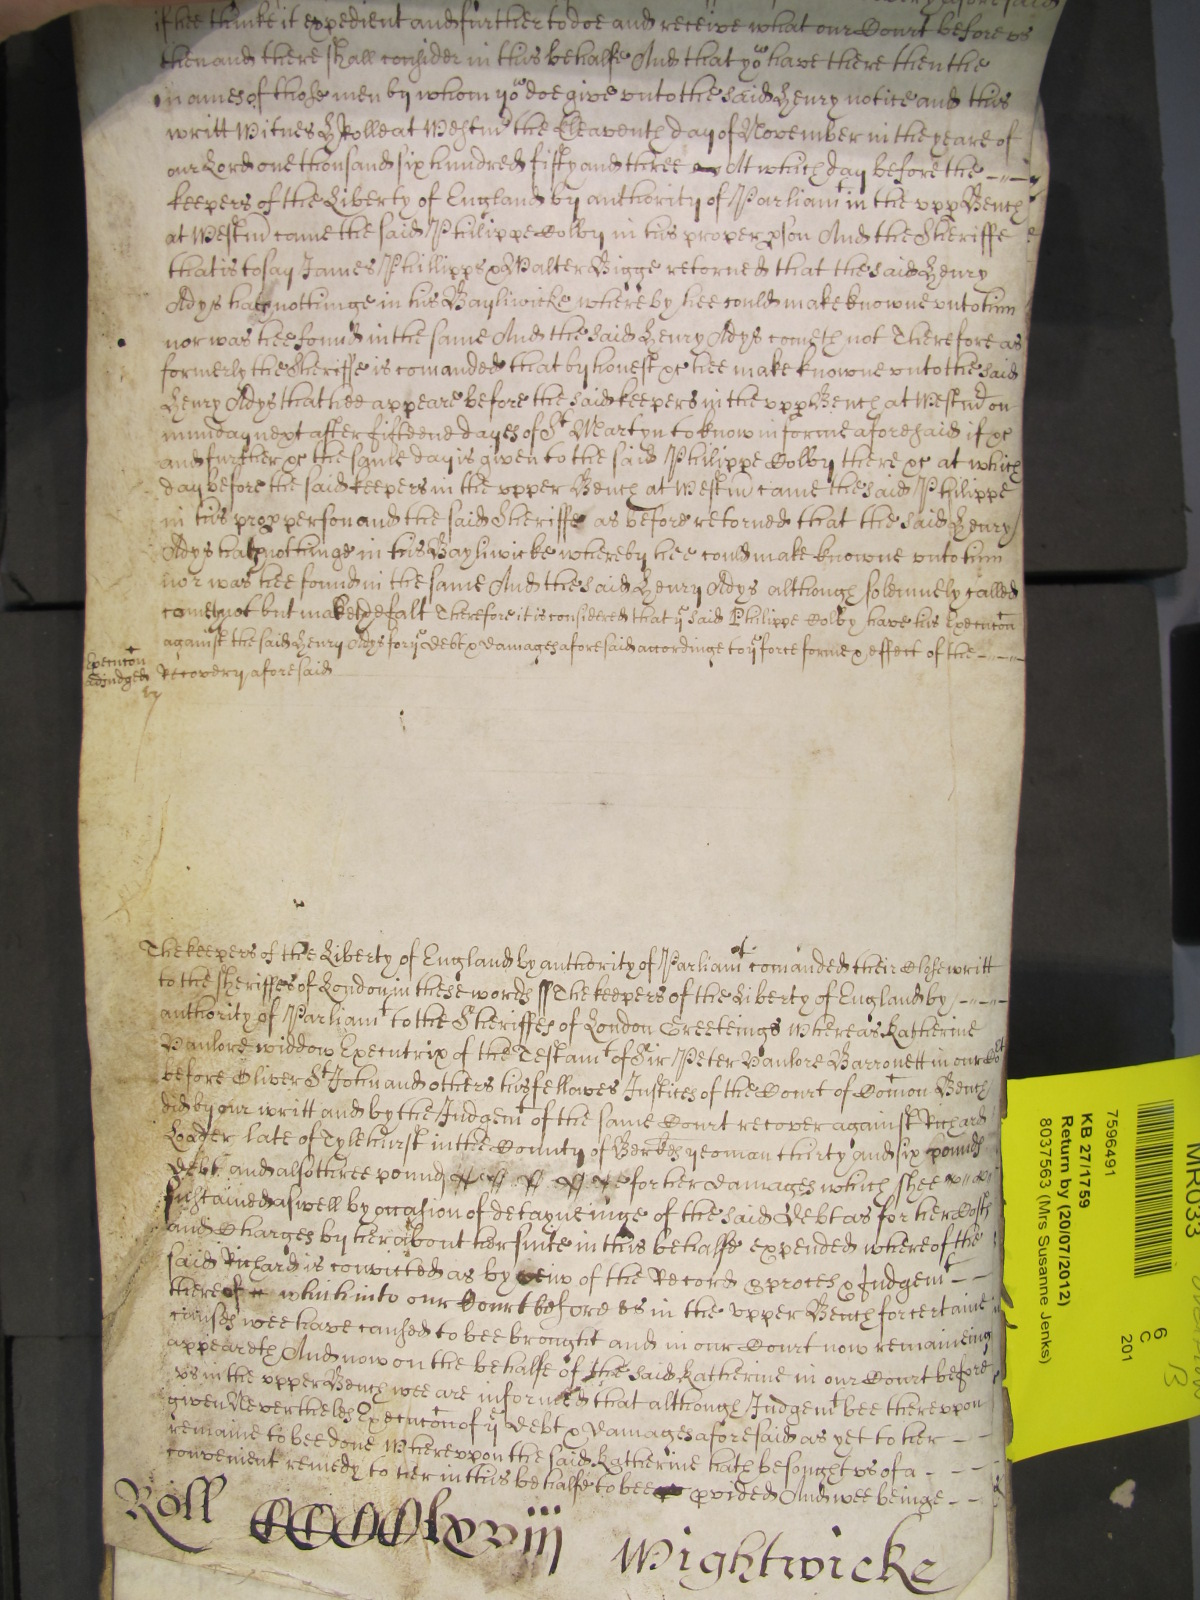 if hee thinke it expedient and further to doe and receive what our Court before vs
then and there shall consider in this behalfe And that yo^u have there then the
names of those men by whom yo^u doe give vnto the said Henry notice and this
writt Witnes H Rolle at Westm^r the Eleaventh day of November in the yeare of
our Lord one thousand six hundred fifty and three At which day before the
keepers of the Liberty of England by authority of Parliam^t in the vpp Bench
at Westm^r came the said Philippe Colby in his proper pson And the Sheriffe
that is to say James Phillipps & Walter Bigge retorned that the said Henry
Adys hath nothinge in his Bayliwicke whereby hee could make knowne vnto him
nor was hee found in the same And the said Henry Adys cometh not Therefore as
formerly the Sheriffe is comanded that by honest &c hee make knowne vnto the said
Henry Adys that hee appeare before the said keepers in the vpp Bench at Westm^r on
munday next after fifteene dayes of S^t Martyn to know in forme aforesaid if &c
and further &c the same day is given to the said Philippe Colby there &c at which
day before the said keepers in the vpper Bench at Westm^r came the said Philippe
in his prop person and the said Sheriffe as before retorned that the said Henry
Adys hath nothinge in his Bayliwicke whereby hee could make knowne vnto him
nor was hee found in the same And the said Henry Adys although solemnely called
cometh not but maketh defalt Therefore it is considered that y^e said Philippe Colby have his Execucon
against the said Henry Adys for y^e debt & damages aforesaid accordinge to y^e force forme & effect of the
Recovery aforesaid
Execucon
adiudged
The keepers of the Liberty of England by authority of Parliam^t comanded their Close writt
to the Sheriffes of London in these words ss The keepers of the Liberty of England by
authority of Parliam^t to the Sheriffes of London Greeteings Whereas Katherine
Vanlore widdow Executrix of the Testam^t of Sir Peter Vanlore Barronett in our Co^rt
before Oliver S^t John and others his fellowes Justices of the Court of Comon Bench
did by our writt and by the Judgem^t of the same Court recover against Richard
Loader late of Tylehurst in the County of Berks yeoman thirty and six pounds
debt and also three pounds for her damages which shee
sustained aswell by occasion of detayneinge of the said debt as for her Costs
and Charges by her about her suite in this behalfe expended whereof the
said Richard is convicted as by veiw of the Record & proces & Judgem^t
thereof which into our Court before vs in the vpper Bench for certaine
causes wee have caused to bee brought and in our Court now remaineing
appeareth And now on the behalfe of the said Katherine in our Court before
vs in the vpper Bench wee are informed that although Judgem^t bee therevpon
given Neverthelesse Execucon of y^e debt & damages aforesaid as yet to her
remaine to bee done Wherevpon the said Katherine hath besought vs of a
convenient remedy to her in this behalfe to bee pvided And wee beinge
Roll CCCClxviii Wightwicke
MR033
7596491
KB 27/1759
Return by (20/07/2012)
8037563 (Mrs Susanne Jenks)
6
C
201